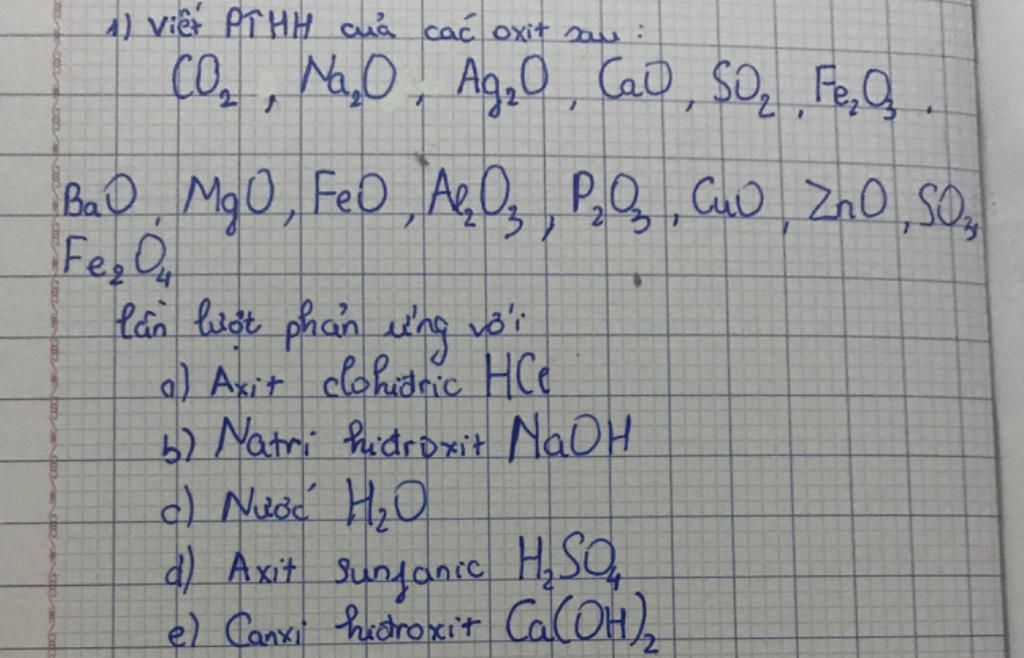 1) Viết PTHH cuả các oxit sau :
CO₂ , Na₂O , Ag₂O , CaO , SO₂ , Fe₂O₃ .
BaO , MgO , FeO , Al₂O₃ , P₂O₃ , CuO , ZnO , SO₃,
Fe₂O₄
lần lượt phản ứng với
a) Axit clohidric HCl
b) Natri hidroxit NaOH
c) Nước H₂O
d) Axit sunfanic H₂SO₄
e) Canxi hidroxit Ca(OH)₂